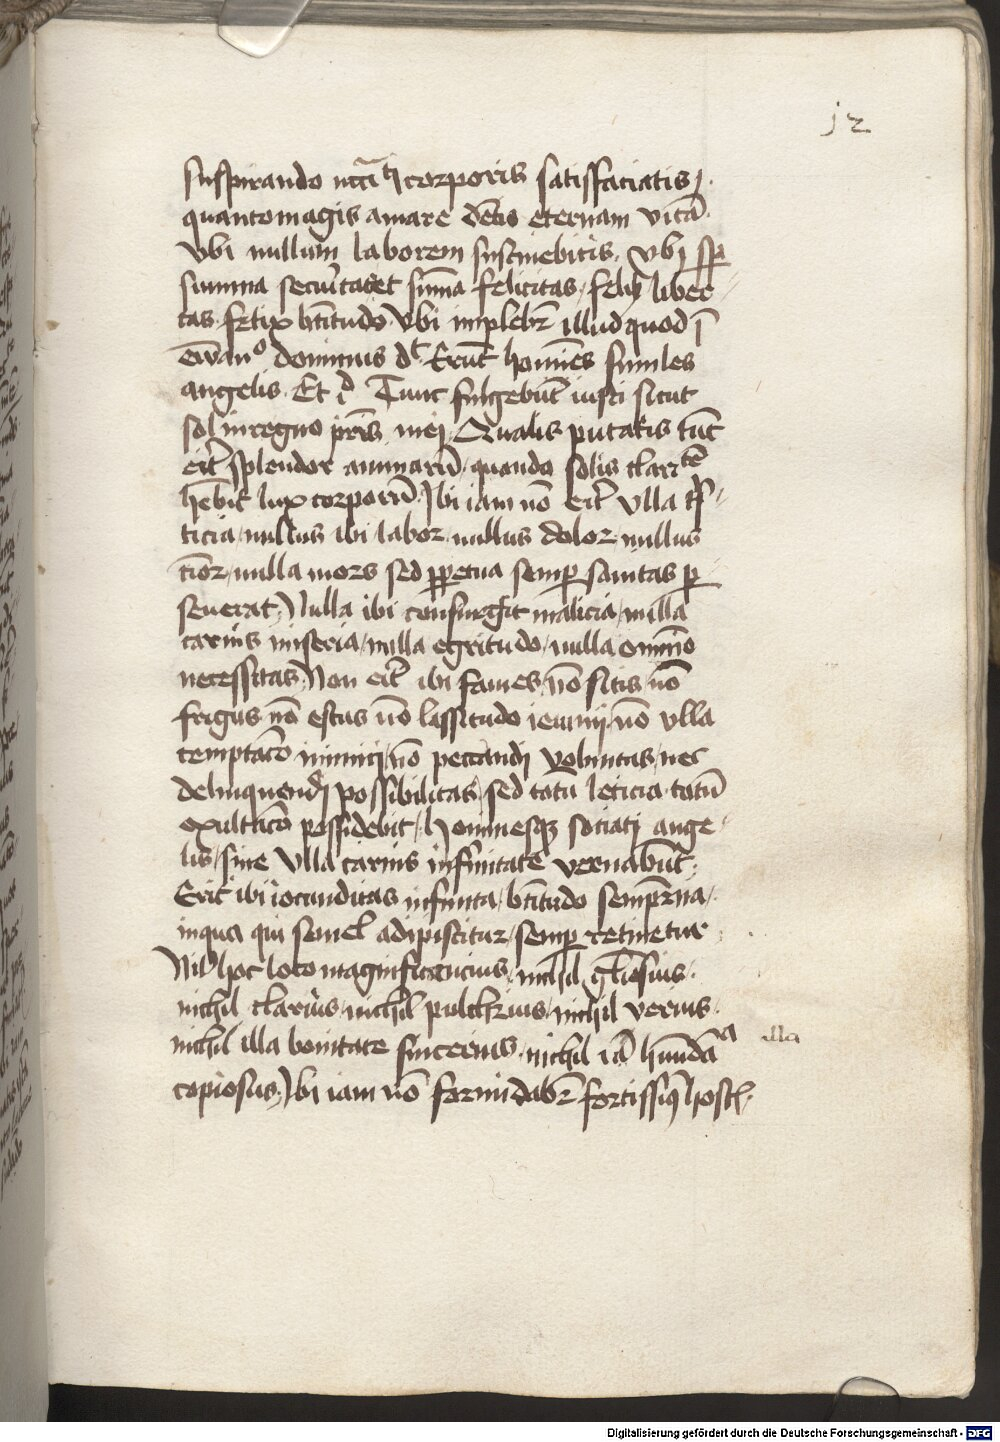 12
suspirando nctāti corporis satisfaciatis
quantomagis amare debetis eternam vitā
vbi nullum laborem sustinebitis. vbi sp̄
summa securitas et sūma felicitas felix liber
tas felix btitudo vbi implebr̄ illud quod ī
ewano dominus dt Erūt homines similes
angelis. Et id Tunc fulgebūt iusti sicut
sol in regno pris mei. Qualis putatis tūc
erit splendor animarū. quando solis claritēm
hēbit lux corporū. Ibi iam nō erit vlla tris
ticia, nullus ibi labor, nullus dolor, nullus
timor, nulla mors sed ppetua semp sanitas p
seuerat, Nulla ibi consurgit malicia, nulla
carnis miseria, nulla egritudo, nulla omnīo
necessitas, Non erit ibi fames, nō sitis, nō
frigus, nō estus nō lassitudo ieiunij, nō vlla
temptacō inimici, nō peccandj voluntas, nec
delinquendj possibilitas, sed totū leticia, totū
exultacō possidebit, hominesqz sociatj ange
lis, sine vlla carnis infirmitate vernabūt,
Erit ibi iocunditas infinita, btitudo sempr̄na,
in qua qui semel adipiscitur, semp retinetur
Nil hoc loco magnificencius, nichil gliosius.
nichil clarius, nichil pulchrius, nichil verius.
nichil illa bonitate sincerius, nichil iā hūndāa illa
copiosus, Ibi iam nō formidabr̄ fortissiq hostis.
Digitalisierung gefördert durch die Deutsche Forschungsgemeinschaft - DFG